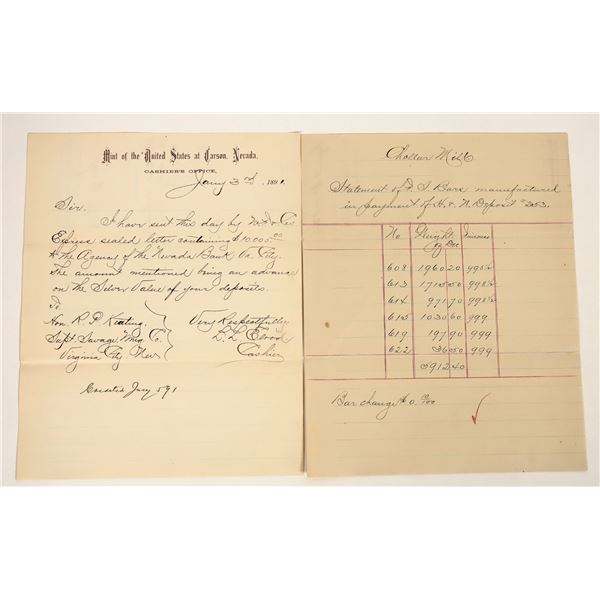 Mint of the United States at Carson, Nevada.
CASHIER'S OFFICE,
Jany 3rd, 1891.
Sir,
I have sent this day by W. F. & Co
Express sealed letter containing $10,000.00
to the Agency of the Nevada Bank Va. City.
The amount mentioned being an advance
on the Silver Value of your deposits.
To
Hon. R. P. Keating,
Supt Savage Mng. Co.
Virginia City Nev
Very Respectfully
Cashier
Credited Jany 5 91
Chollar Mill
Statement of Bars manufactured
in payment of H. & N. Deposit
No Weight Fineness
Oz Dec
608 1960 20 998½
613 1715 50 998½
614 971 70 998½
615 1030 60 999
619 197 90 999
622 36 50 999
5912 40
Bar charge $0.